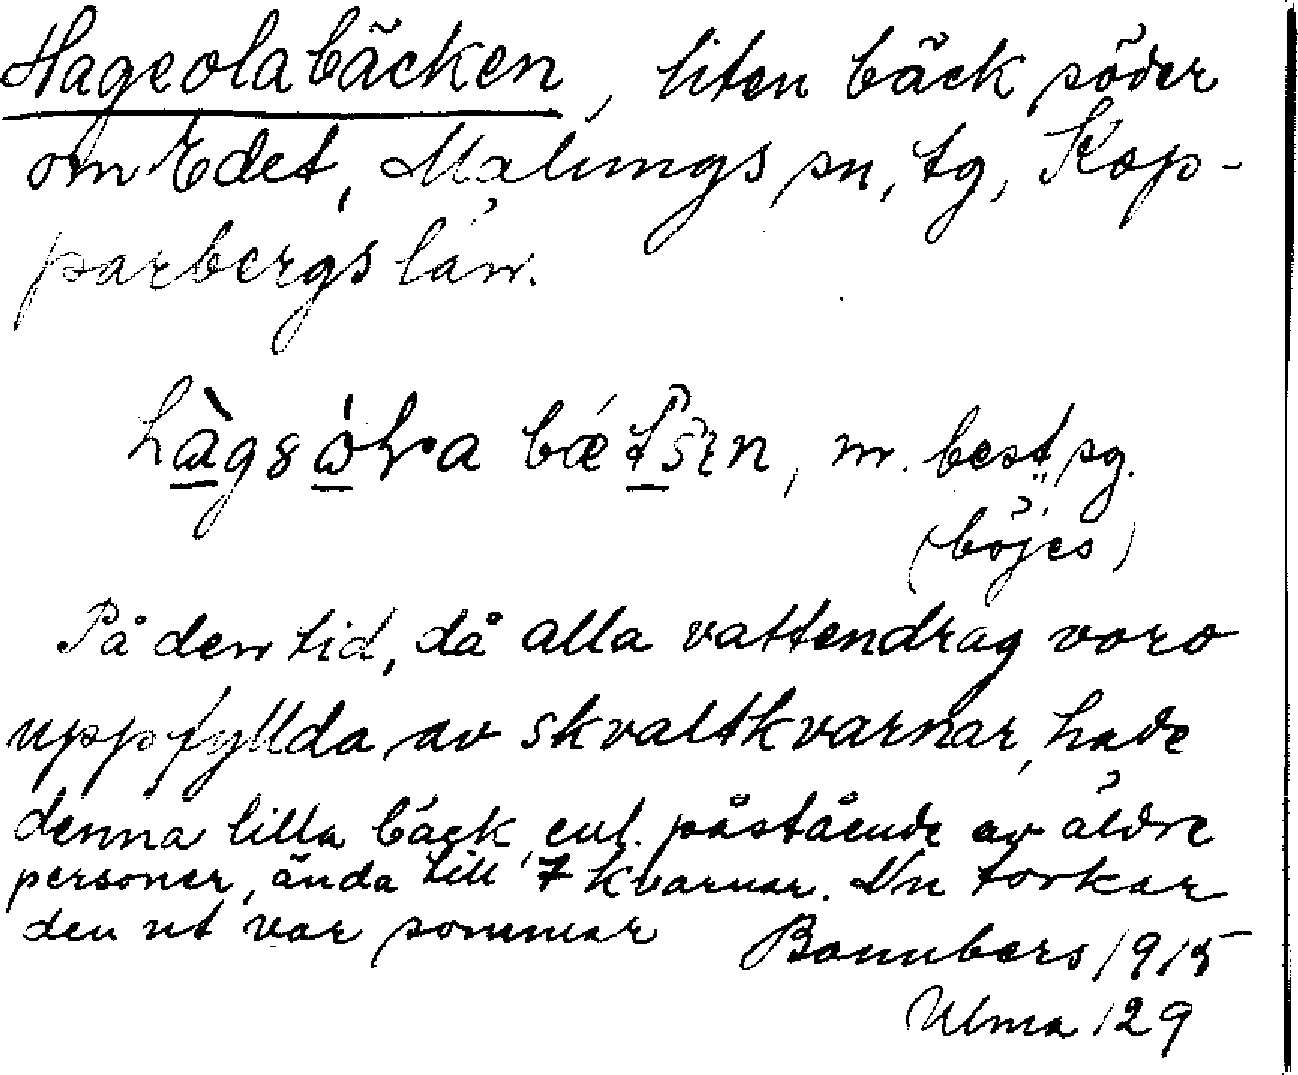 Hageolabäcken, liten bäck söder
om Edet, Malungs sn, tg, Kop-
parbergs län.
bǽtsɛn, m. best sg.
(böjes)
På den tid, då alla vattendrag voro
uppfyllda av skvaltkvarnar, hade
denna lilla bäck, enl. påstående av äldre
personer, ända till 7 kvarnar. Nu torkar
den ut var sommar Bannbers 1915
Ulma 129